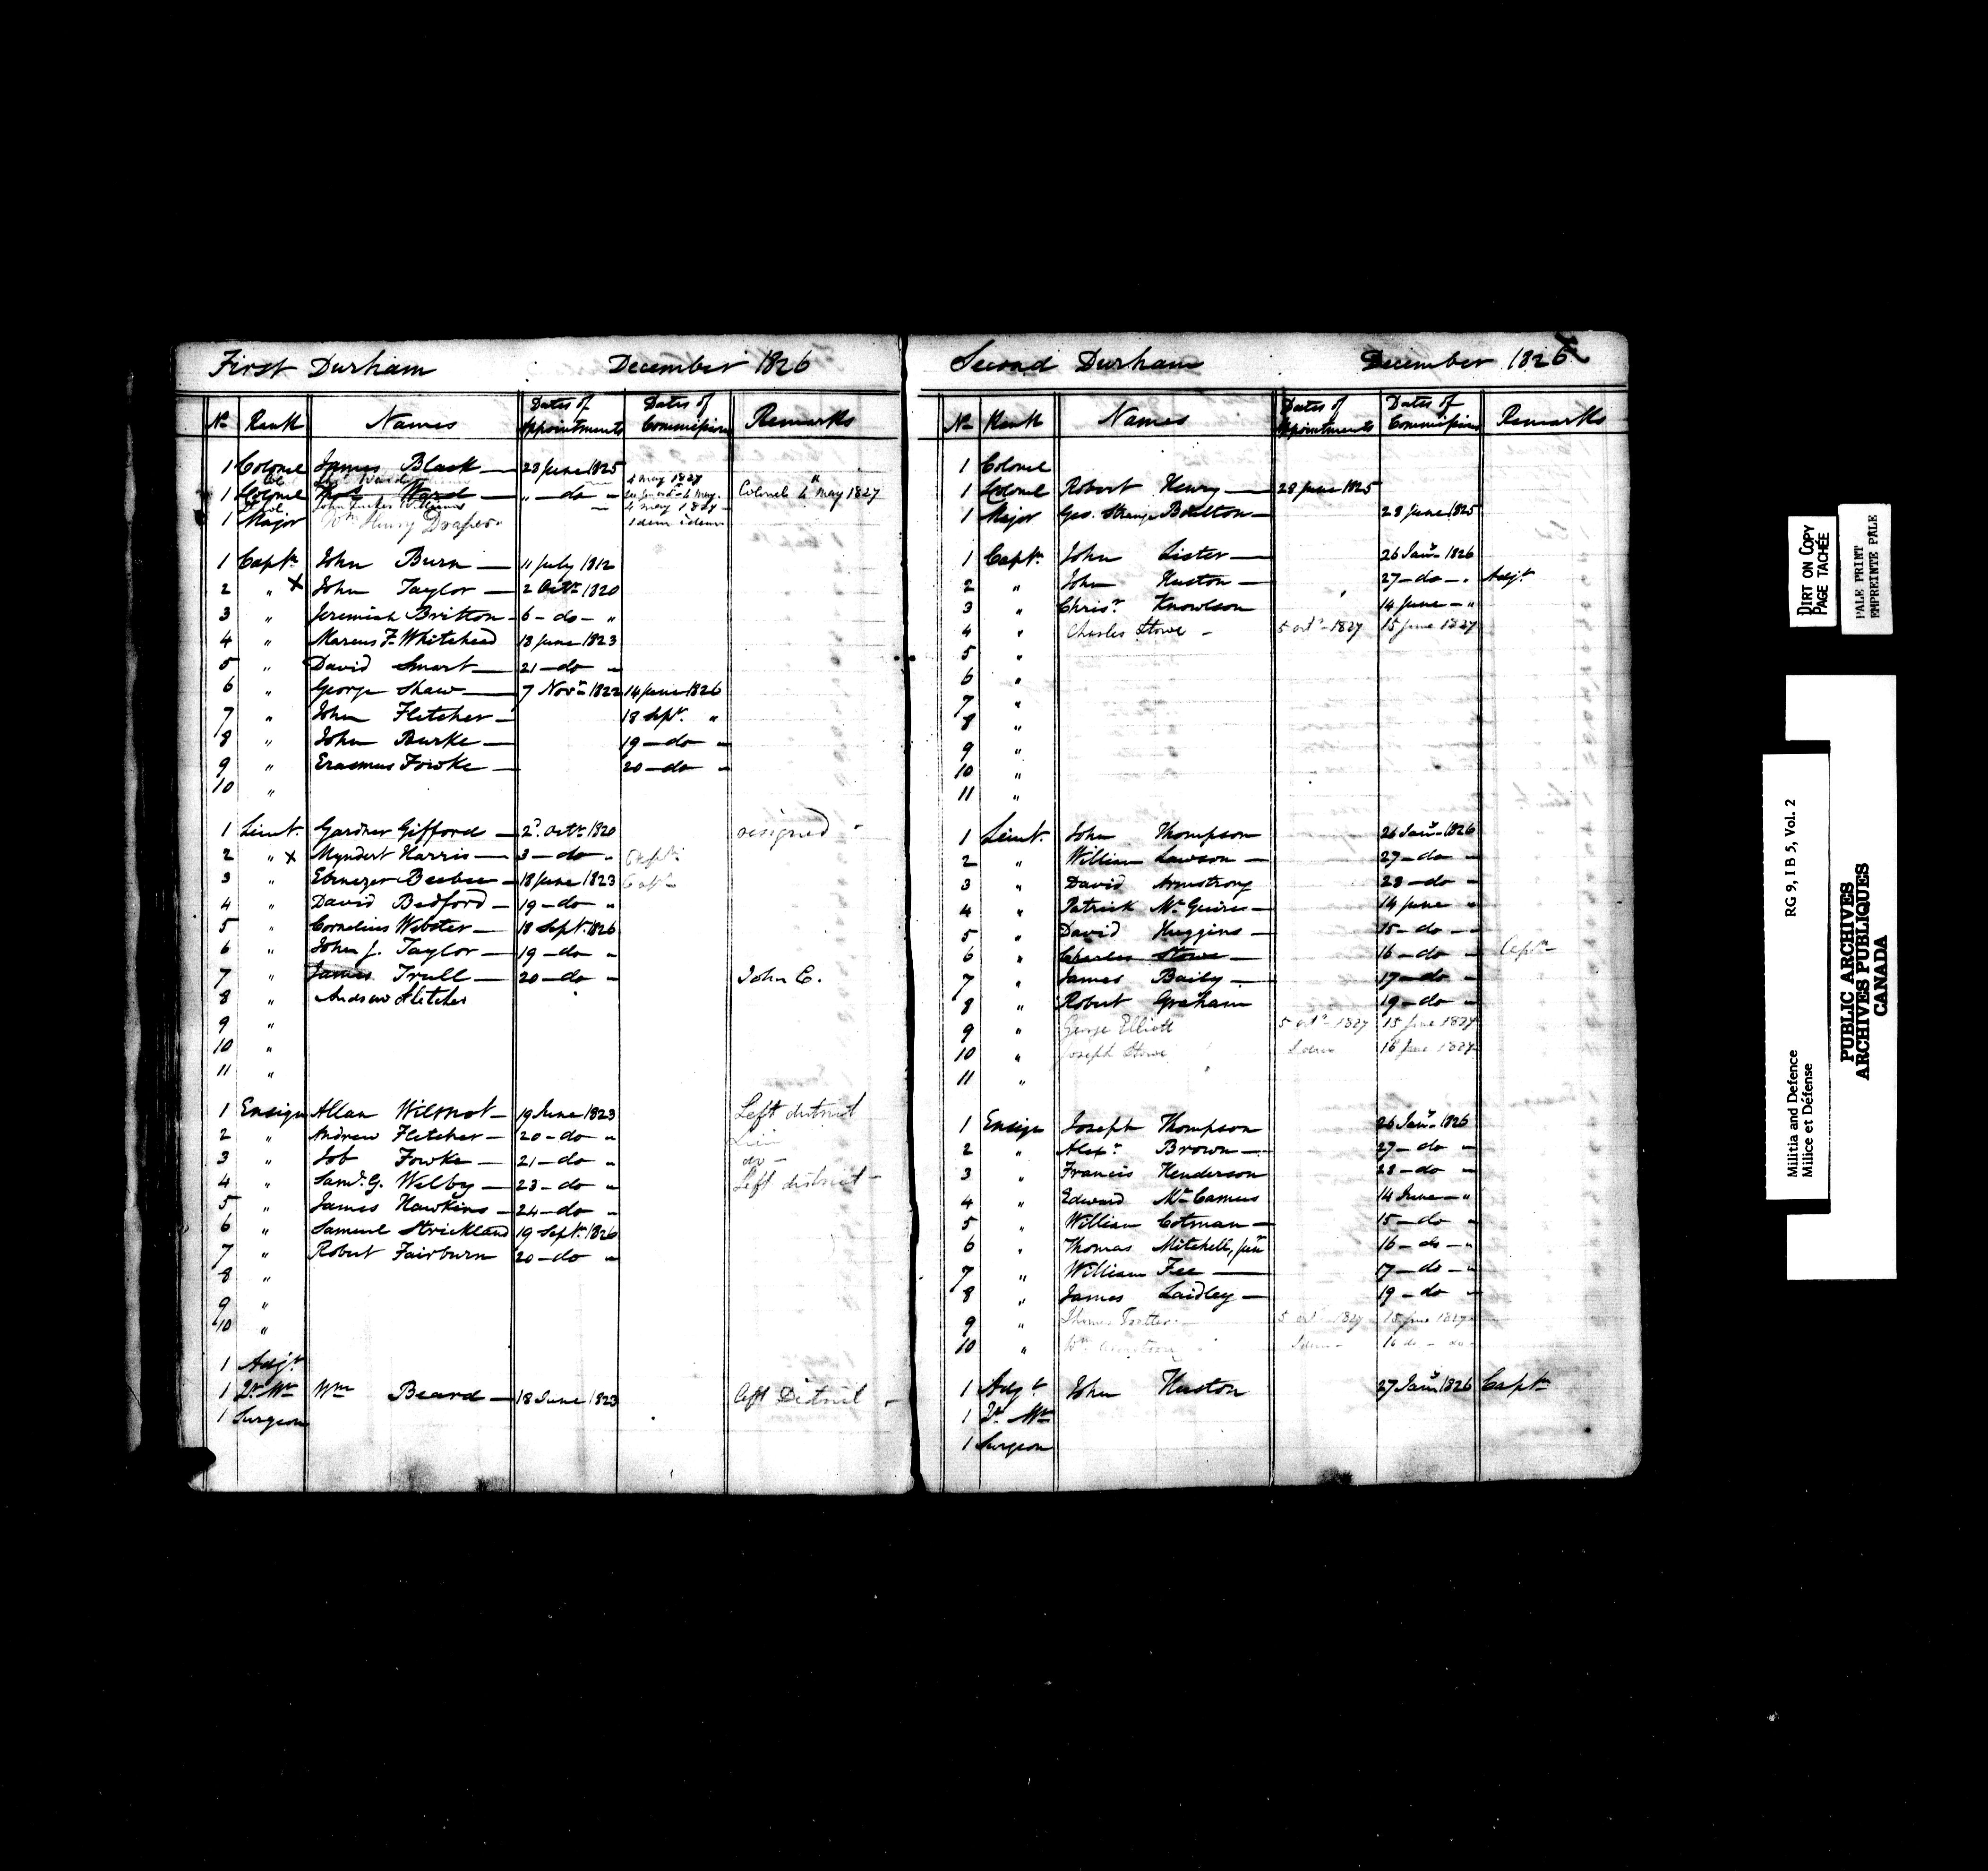 First Durham December 1826
No. Rank Names Dates of Appointments Dates of Commissions Remarks
1 Colonel James Black — 28 June 1825
Col Ths. Ward 4 May 1827
1 Lt Colonel Thos. Ward — " — do " Colonel 4th May 1827
Lt Col. John Tucker Williams 4 May 1827
1 Major Wm Henry Draper 1 dem idem
1 Captn. John Burn — 11 July 1812
2 " X John Taylor — 2 Octr. 1820
3 " Jeremiah Britton - 6 - do - "
4 " Marcus F. Whitehead 18 June 1823
5 " David Smart — 21 - do "
6 " George Shaw — 7 Novr. 1822 14 June 1826
7 " John Fletcher — 18 Sept. "
8 " John Burke — 19 - do "
9 " Erasmus Fowke — 20 - do "
10 "
1 Lieut. Gardner Gifford — 2d. Octr. 1820 resigned -
2 " X Myndert Harris — 3 - do - Captn.
3 " Ebenezer Beebee — 18 June 1823 Captn
4 " David Bedford — 19 - do "
5 " Cornelius Webster — 18 Sept. 1826
6 " John J. Taylor — 19 - do "
7 " James Trull — 20 - do " John C.
8 " Andrew Fletcher
9 "
10 "
11 "
1 Ensign Allan Wilmot — 19 June 1823 Left district
2 " Andrew Fletcher — 20 - do "
3 " Job Fowke — 21 - do " do -
4 " Saml. G. Welby — 23 - do " Left district -
5 " James Hawkins — 24 - do "
6 " Samuel Strickland 19 Sept. 1826
7 " Robert Fairburn 20 - do "
8 "
9 "
10 "
1 Adjt.
1 Qr. Mr. Wm Beard — 18 June 1823 left District -
1 Surgeon
Second Durham December 1826
No. Rank Names Dates of Appointments Dates of Commissions Remarks
1 Colonel
1 Lt Colonel Robert Henry — 28 June 1825
1 Major Geo. Strange Boulton — 28 June 1825
1 Captn. John Lister — 26 Jany. 1826
2 " John Huston — 27 - do - " Adjt.
3 " Chrisr. Knowlson 14 June - "
4 " Charles Stowe - 5 octr - 1827 15 June 1827
5 "
6 "
7 "
8 "
9 "
10 "
11 "
1 Lieut. John Thompson 26 Jany. 1826
2 " William Lawson — 27 - do "
3 " David Armstrong 28 - do "
4 " Patrick McGuires — 14 June "
5 " David Huggins — 15 - do -
6 " Charles Stowe — 16 - do " Captn
7 " James Baily — 17 - do "
8 " Robert Graham 19 - do "
9 " George Elliott 5 octr - 1827 15 June 1827
10 " Joseph Stowe Idem 16 June 1827
11 "
1 Ensign Joseph Thompson 26 Jany. 1826
2 " Alexr. Brown — 27 - do "
3 " Francis Henderson 28 - do "
4 " Edward McCamus 14 June - "
5 " William Cotman — 15 - do "
6 " Thomas Mitchell, junr 16 - do - "
7 " William Fee — 17 - do - "
8 " James Laidley — 19 - do "
9 " Thomas 5 octr - 1827 15 June 1827
10 " Wm Armstrong Idem - 16 do - do -
1 Adjt. John Huston 27 Jany. 1826 Captn
1 Qr. Mr.
1 Surgeon
DIRT ON COPY
PAGE TACHÉE
PALE PRINT
EMPREINTE PALE
Militia and Defence RG 9, I B 5, Vol. 2
Milice et Défense
PUBLIC ARCHIVES
ARCHIVES PUBLIQUES
CANADA